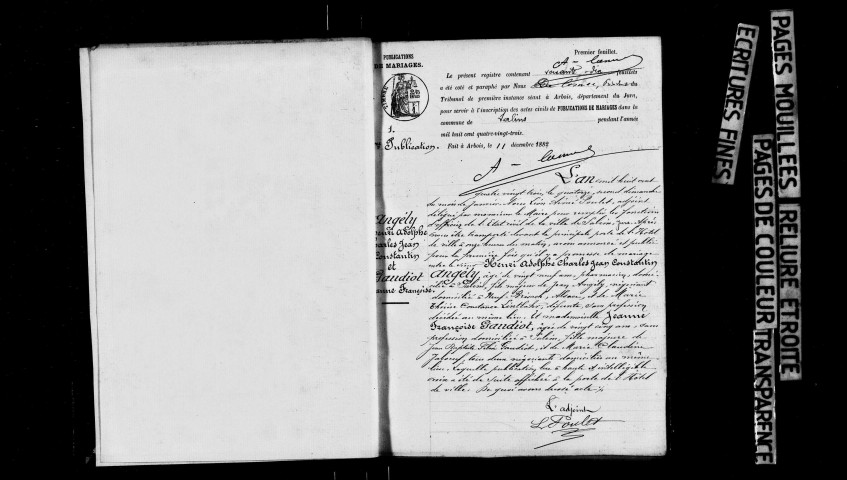 PUBLICATIONS
DE MARIAGES.
TIMBRE
1.
Publication.
Angély
Henri Adolphe
Charles Jean
Constantin
et
Gaudiot
Jeanne Françoise.
Premier feuillet.
Le présent registre contenant soixante-dix feuillets
a été coté et paraphé par Nous
Tribunal de première instance séant à Arbois, département du Jura,
pour servir à l'inscription des actes civils de PUBLICATIONS DE MARIAGES dans la
commune de Salins pendant l'année
mil huit cent quatre-vingt-trois.
Fait à Arbois, le 11 décembre 1882
L'an mil huit cent
quatre vingt trois, le quatorze, second dimanche
du mois de janvier. Nous Léon Aimé Poulet, adjoint
délégué par monsieur le Maire pour remplir les fonctions
d'officier de l'Etat civil de la ville de Salins, Jura. Après
nous être transporté devant la principale porte de l'Hôtel
de ville à onze heures du matin, avons annoncé et publié
pour la première fois qu'il y a promesse de mariage
entre Henri Adolphe Charles Jean Constantin
Angély, âgé de vingt neuf ans, pharmacien, domi-
cilié à Salins, fils majeur de Jean Angély, négociant
domicilié à Neuf Brisach, Alsace, et de Marie
Thérèse Constance, défunte, sans profession
décédée au même lieu. Et mademoiselle Jeanne
Françoise Gaudiot, âgée de vingt cinq ans, sans
profession domiciliée à Salins, fille majeure de
Jean Baptiste Gaudiot, et de Marie Claudine
tous deux négociants domiciliés au même
lieu. Laquelle publication lue à haute et intelligible
voix a été de suite affichée à la porte de l'Hôtel
de ville. De quoi avons dressé acte.
L'adjoint
L. Poulet
ECRITURES FINES
PAGES MOUILLEES
RELIURE ETROITE
PAGES DE COULEUR
TRANSPARENCE